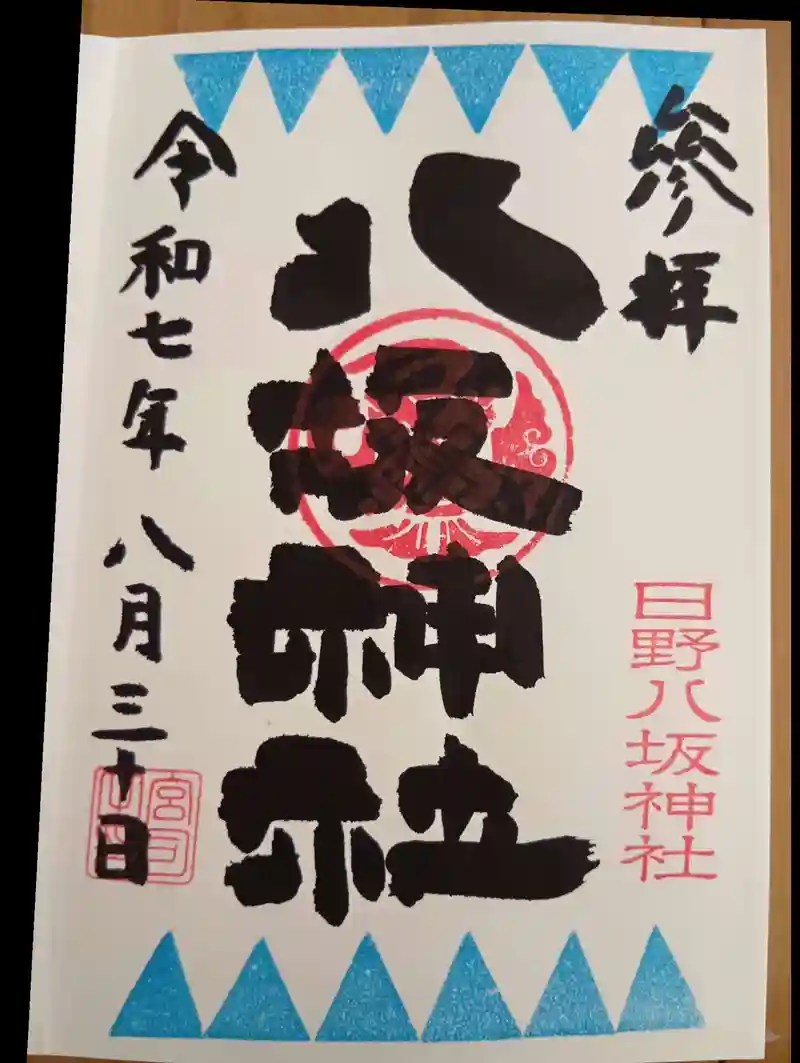 參拝
日野八坂神社
八坂神社
令和七年八月三十日
宮司